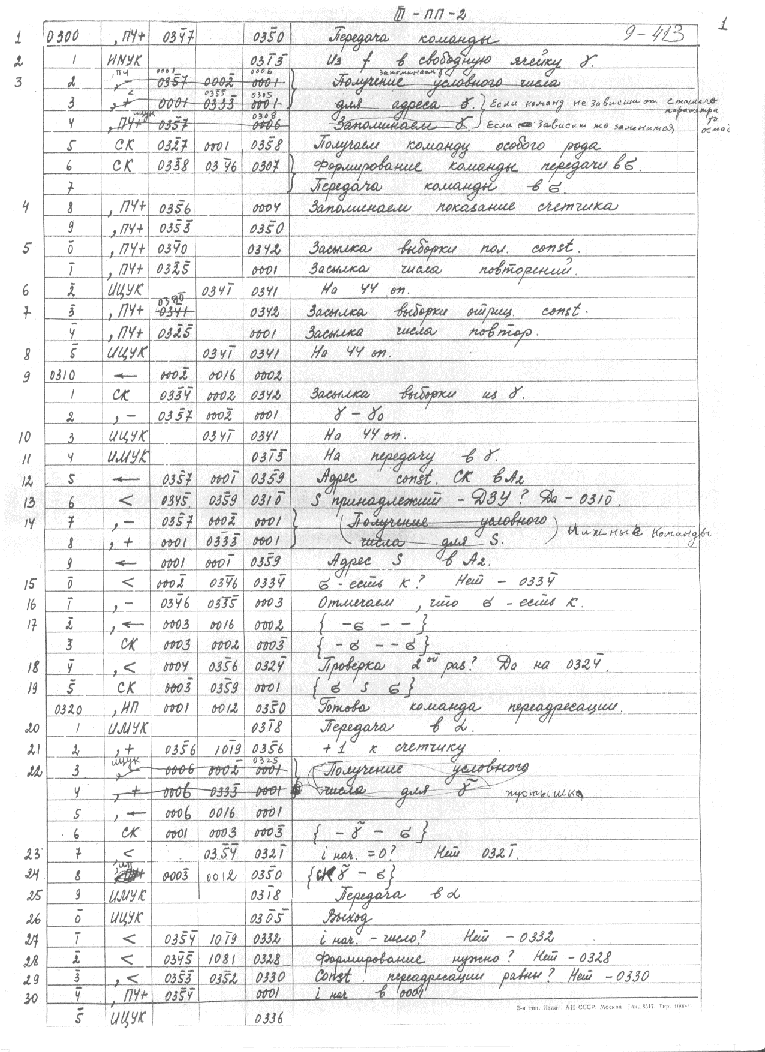 III-ПП-2
9-413 1
1 0300 , ПЧ+ 034̄7 035̄0 Передача команды
2 1 ИМУК 03Ī3̄ Из f в свободную ячейку γ.
3 2 0357 0002̄ 0001 Получение условного числа
3 , + 0001 0333̄ 0001 для адреса γ. Если команд не зависит от старшего параметра
4 , ПЧ+ 035̄7 0006 Запоминаем γ Если зависит то
5 СК 032̄7 0001 0358 Получаем команду особого рода
6 СК 033̄8 034̄6 0307 Формирование команды передачи в б.
7 Передача команды в б.
4 8 , ПЧ+ 035̄6 0004 Запоминаем показание счетчика
9 , ПЧ+ 035̄3̄ 035̄0
5 0̄ , ПЧ+ 034̄0 0342 Засылка выборки пол. const.
1̄ , ПЧ+ 032̄5 0001 Засылка числа повторений.
6 2̄ ИЦУК 034̄1 0341 На ЧЧ оп.
7 3̄ , ПЧ+ 0341 0342 Засылка выборки отриц. const.
4̄ , ПЧ+ 032̄5 0001 Засылка числа повтор.
8 5̄ ИЦУК 034̄1 0341 На ЧЧ оп.
9 0310 ← 0002̄ 0016 0002
1 СК 033̄4̄ 0002 0342 Засылка выборки из γ.
2 , – 0357 0002̄ 0001 γ – γ₀
10 3 ИЦУК 034̄1 0341 На ЧЧ оп.
11 4 ИМУК 031̄3̄ На передачу в γ.
12 5 ← 0357 0001̄ 0359 Адрес const. СК в А2
13 6 < 0345̄ 0359 0310̄ S принадлежит – ДЗУ? Да – 0310̄
14 7 , – 0357 0002̄ 0001 Получение условного
8 , + 0001 0333̄ 0001 числа для S. команды
9 ← 0001 0001̄ 0359 Адрес S в А2.
15 0̄ < 0002̄ 034̄6 0334 б – есть к? Нет – 0334̄
16 1̄ , – 034̄6 033̄5̄ 0003 Отмечаем, что б – есть к.
17 2̄ , ← 0003 0016 0002 { – б – – }
3̄ СК 0003 0002 0003̄ { – б – – б }
18 4̄ , < 0004 035̄6 0324̄ Проверка 2ой раз? Да на 0324̄
19 5̄ СК 0003̄ 0359 0001 { б S б }
0320 , ИП 0001 0012 035̄0 Готова команда переадресации.
20 1 ИМУК 031̄8 Передача в α.
21 2 , + 035̄6 101̄9 035̄6 +1 к счетчику
22 3 0006 0002̄ 0001 Получение условного
4 , + 0006 0333̄ 0001 числа для γ̃ пустышка
5 , ← 0006 0016 0001
6 СК 0001 0003 0003̄ { – γ̃ – б }
23 7 < 035̄4̄ 0321̄ i нач. = 0? Нет 0321̄.
24 8 0003̄ 0012 035̄0 γ̃ – б }
25 9 ИМУК 031̄8 Передача в α
26 0̄ ИЦУК 030̄5̄ Выход
27 1̄ < 035̄4̄ 101̄9 0332 i нач. – число? Нет – 0332
28 2̄ < 034̄5 1081 0328 Формирование нужно? Нет – 0328
29 3̄ , < 035̄3̄ 035̄2 0330 Const. переадресации равны? Нет – 0330
30 4̄ , ПЧ+ 035̄4̄ 0001 i нач в 0001
5̄ ИЦУК 0336